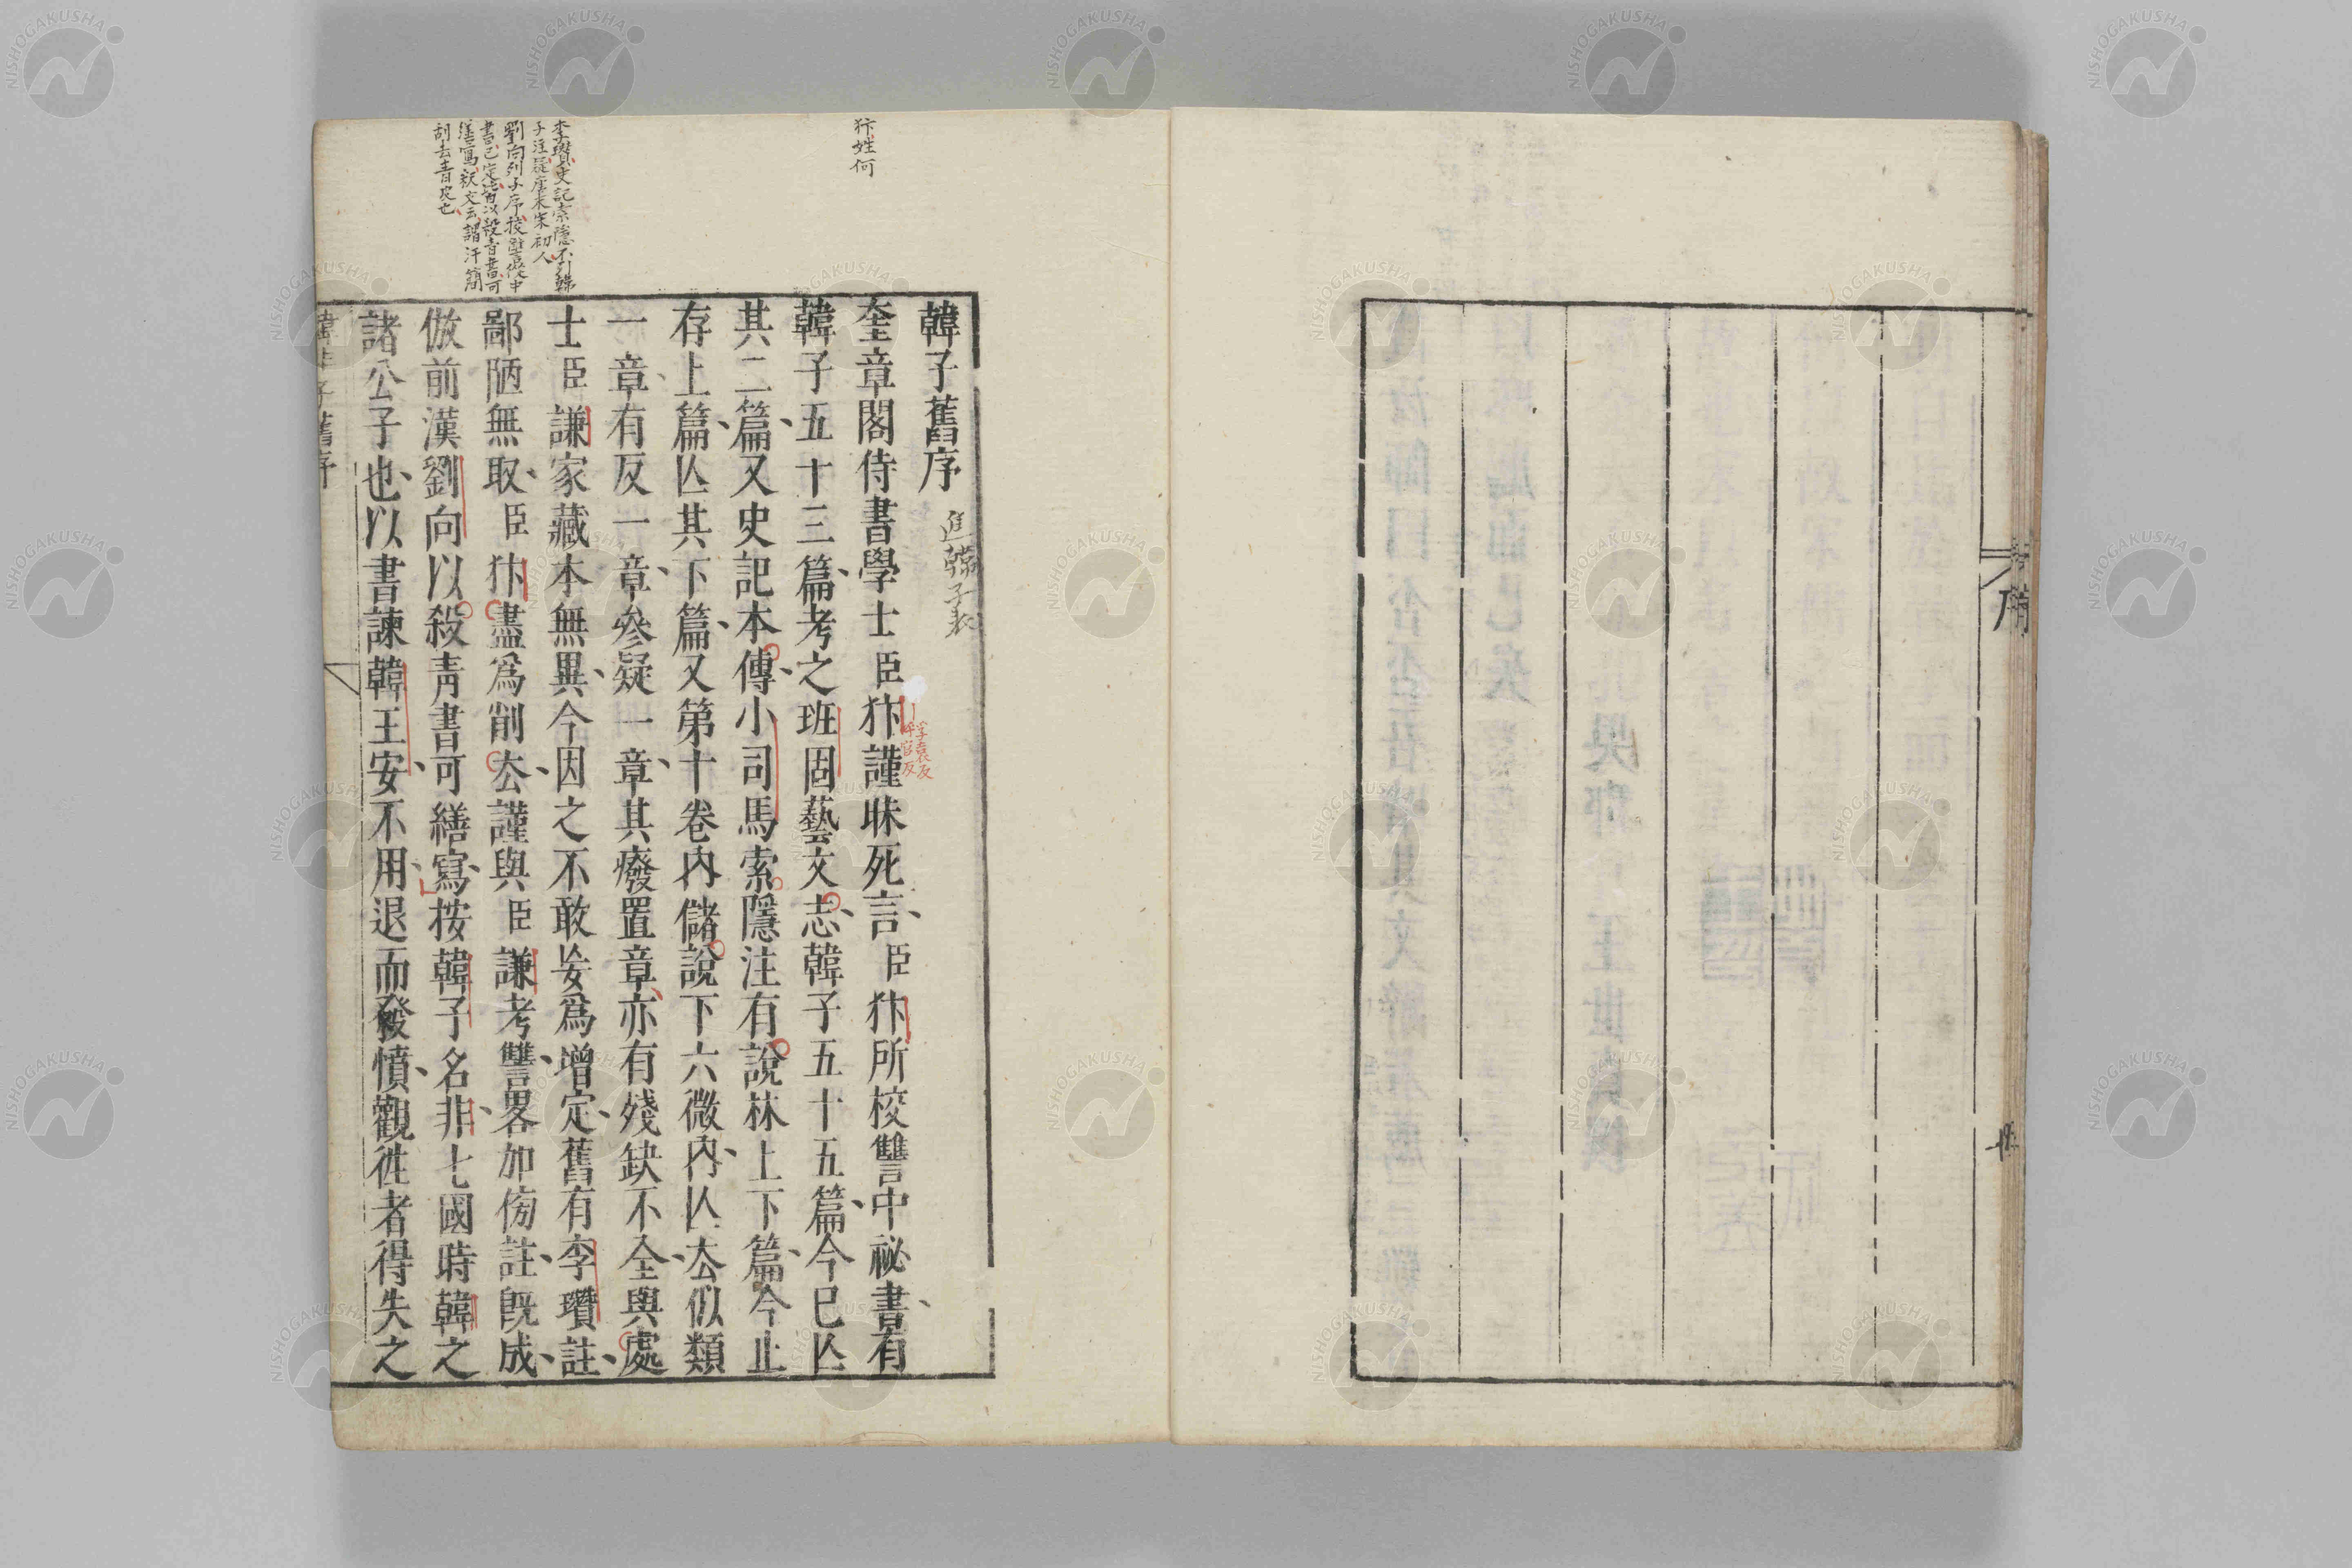 韓子舊序
進韓子表
奎章閣侍書學士臣犿謹昧死言臣犿所校讐中祕書有
韓子五十三篇考之班固藝文志韓子五十五篇今已亾
其二篇又史記本傳小司馬索隱注有說林上下篇今止
存上篇亾其下篇又第十卷內儲說下六微內亾厺似類
一章有反一章叅疑一章其癈置章亦有殘缺不全與處
士臣謙家藏本無異今因之不敢妄爲增定舊有李瓚註
鄙陋無取臣犿盡爲削厺謹與臣謙考讐畧加傍註旣成
倣前漢劉向以殺靑書可繕寫按韓子名非七國時韓之
諸公子也以書諫韓王安不用退而發憤觀徃者得失之
韓非子舊序
犿姓何
李瓚史記索隱不引韓
子注疑唐末宋初人
劉向列子序校讐從中
書已定皆以殺青書可
繕寫釈文云謂汗簡
刮去青皮也
呼官反
孚袁反
NISHOGAKUSHA